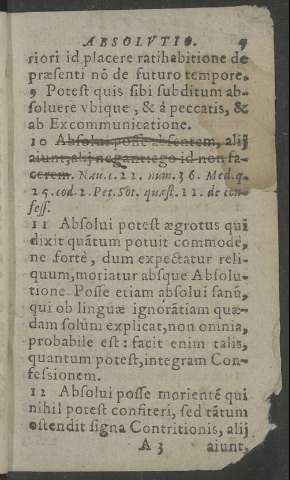 ABSOLVTIO. 5
riori id placere ratihabitione de
præsenti nõ de futuro tempore.
9 Potest quis sibi subditum ab-
soluere vbique, & á peccatis, &
ab Excommunicatione.
10 Absolui posse absentem, alij
aiunt, alij negant: ego id non fa-
cerem. Nau. c. 21. num. 36. Med. q.
25. cod. 2. Pet. Sot. quæst. 11. de con-
fess.
11 Absolui potest ægrotus qui
dixit quãtum potuit commodé,
ne forté, dum expectatur reli-
quum, moriatur absque Absolu-
tione. Posse etiam absolui sanũ,
qui ob linguæ ignorãtiam quæ-
dam solùm explicat, non omnia,
probabile est: facit enim talis,
quantum potest, integram Con-
fessionem.
12 Absolui posse morienté qui
nihil potest confiteri, sed tãtum
ostendit signa Contritionis, alij
A 3 aiunt,